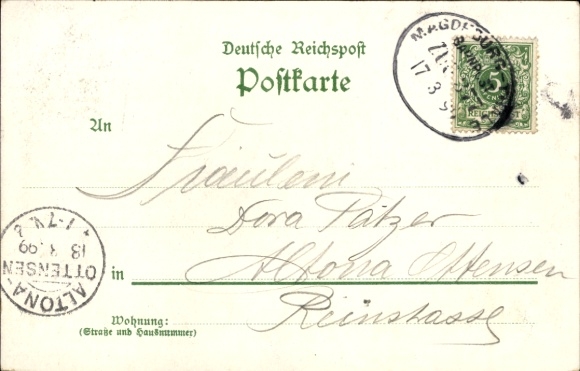 Deutsche Reichspost
Postkarte
MAGDEBURG
BAHNPOST
ZUG
17 3 9
5
PFENNIG
REICHSPOST
An
Fräulein
Dora Pätzer
in Altona Ottensen
Reinstrasse
Wohnung:
(Straße und Hausnummer)
ALTONA-
OTTENSEN
18 3 99
1-7V.